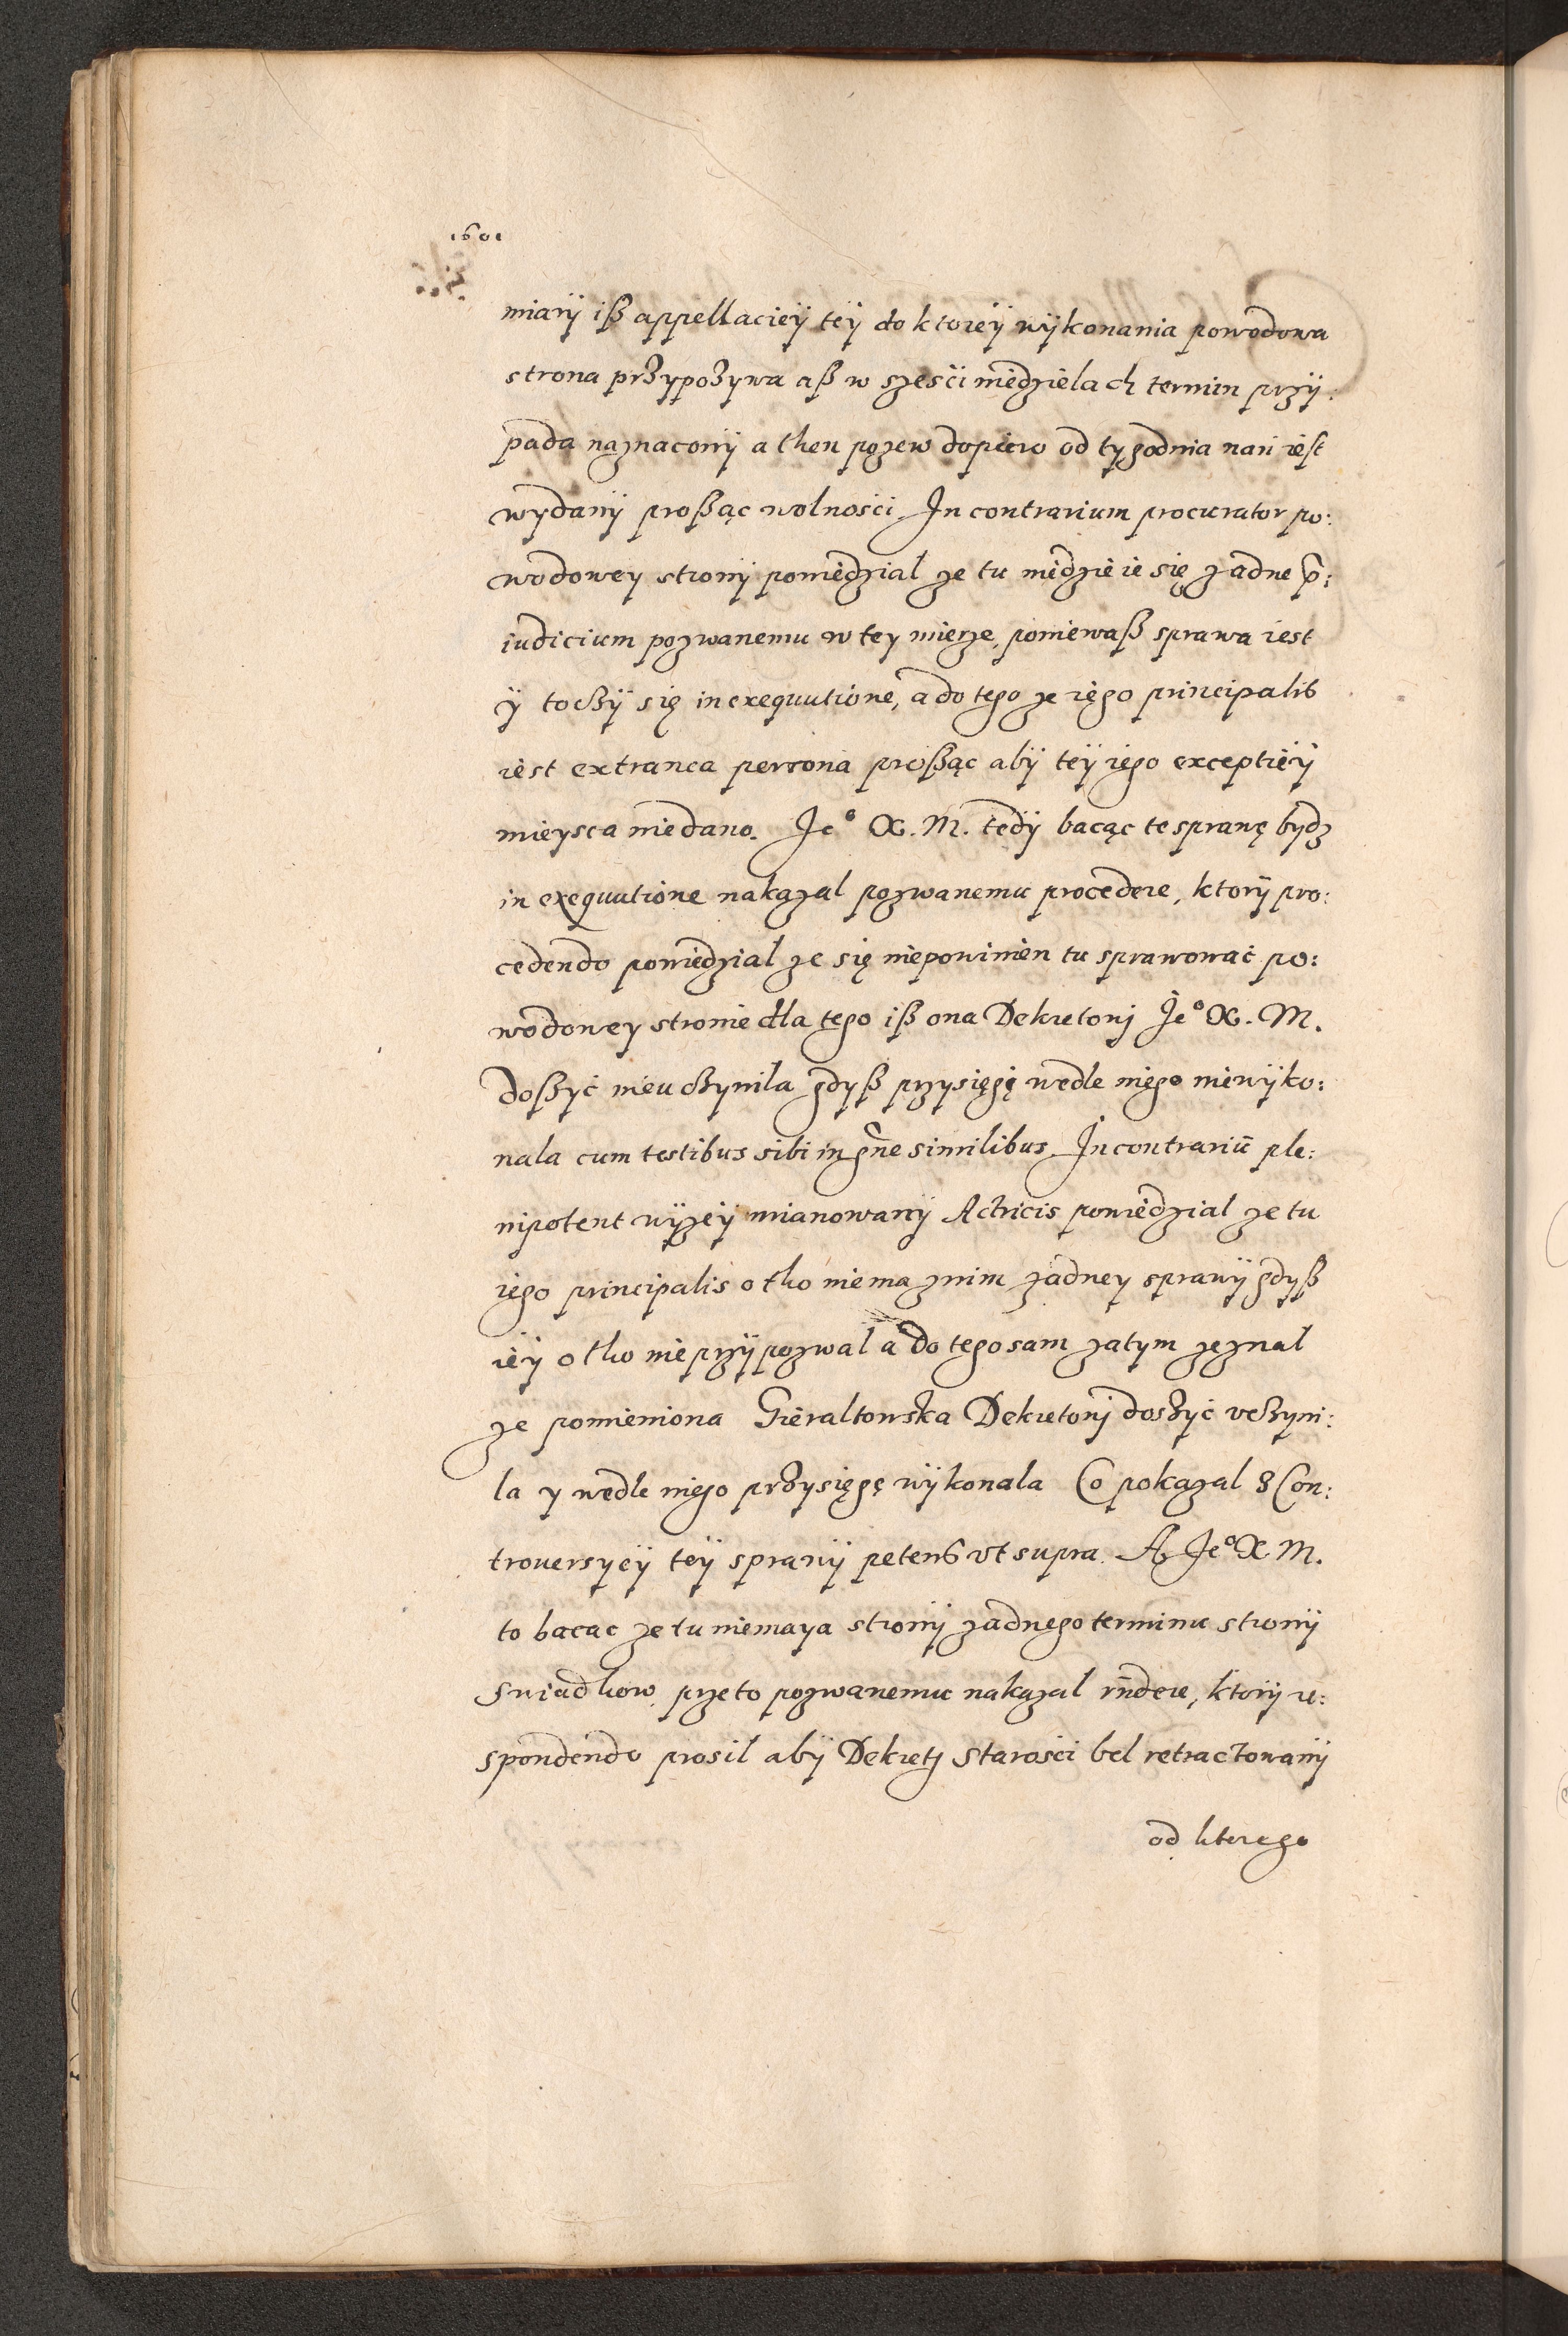 1601
miarÿ iß appellacieÿ teÿ do ktoreÿ wÿkonania powodowa
strona przypozywa aß w szesci niedzielach termin przÿ:
pada naznaconÿ a then pozew dopiero od tygodnia nań iest
wydanÿ proßąc wolności. In contrarium procurator po:
wodowey stronÿ powiedzial ze tu niedzieie się zadne p̃:
iudicium pozwanemu w tey mierze, poniewaß sprawa iest
ÿ toczÿ się in exequutione, a do tego ze iego principalis
iest extranea persona proßąc abÿ teÿ iego exceptieÿ
mieysca niedano. Je° X. M. tedÿ bacąc te sprawę bydz
in exequutione nakazal pozwanemu procedere, ktorÿ pro:
cedendo powiedzial ze się niepowinien tu sprawować po:
wodowey stronie dla tego iß ona Dekretowj Je° X. M.
doßyć nieuczynila gdyß przysięgę wedle niego niewÿko:
nala cum testibus sibi in gñe similibus. In contrariũ ple:
nipotent wÿzeÿ mianowanÿ Actricis powiedzial ze tu
iego principalis o tho niema znim zadney sprawÿ gdyß
ieÿ o tho nieprzÿpozwal a do tego sam zatym zeznal
ze pomieniona Gieraltowska Dekretowj doszyć vczyni:
la y wedle niego przysięgę wÿkonala Co pokazal z Con:
trouersyeÿ teÿ sprawÿ petens vt supra. A Je° X. M.
to bacac ze tu niemaya stronÿ zadnego terminu stronÿ
Swiadkow, przeto pozwanemu nakazal rñdere, ktorÿ re:
spondendo prosil abÿ Dekretj Starosci bel retractowanÿ
od kterego